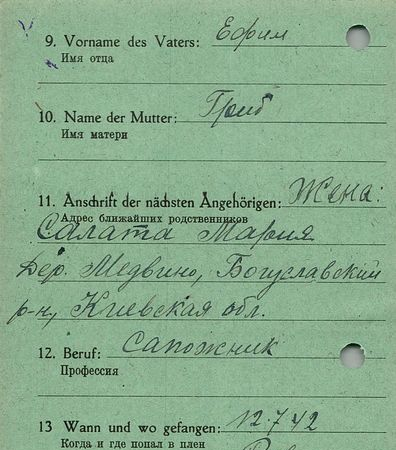 9. Vorname des Vaters: Ефим
Имя отца
10. Name der Mutter: Гриб
Имя матери
11. Anschrift der nächsten Angehörigen: Жена:
Адрес ближайших родственников
Салата Мария
Дер. Медвино, Богуславский
р-н, Киевская обл.
12. Beruf: Сапожник
Профессия
13 Wann und wo gefangen: 12.7.42
Когда и где попал в плен